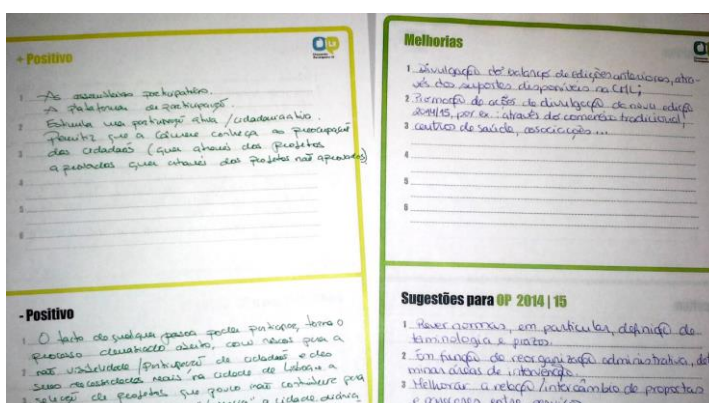 + Positivo
1 As assembleias participativas.
A plataforma de participação.
2 Estimula uma participação ativa / cidadania ativa.
Permite que a Câmara conheça as preocupações
3 dos cidadãos (quer através dos projetos
aprovados quer através dos projetos não aprovados)
4
5
6
- Positivo
1 O facto de qualquer pessoa poder participar, torna o
processo demasiado aberto, para a
2 não participação de cidadãos e das
suas necessidades reais na cidade de Lisboa, a
3 seleção de projetos que pouco ou nada para
a cidade
Melhorias
1 Divulgação do balanço de edições anteriores, atra-
vés dos suportes disponíveis na CML;
2 Promoção de ações de divulgação da nova edição
2014/15, por ex.: através do comércio tradicional,
3 centros de saúde, associações ...
4
5
6
Sugestões para OP 2014 | 15
1 Rever normas, em particular, definição de
terminologia e prazos.
2 Em função da reorganização administrativa, det
minar áreas de intervenção.
3 Melhorar a relação / intercâmbio de propostas
e entre serviços